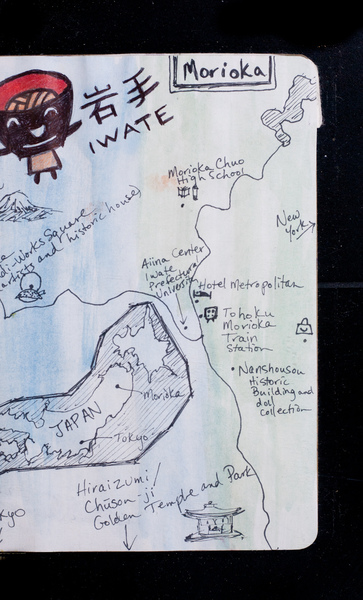 Morioka
岩手
IWATE
Morioka Chuo
High School
New
York
Square
artists and historic house
Aiina Center
Iwate
Prefectural
University
Hotel Metropolitan
Tohoku
Morioka
Train
Station
Nanshousou
Historic
Building and
doll
collection
JAPAN
Morioka
Tokyo
Hiraizumi/
Chūson-ji/
Golden Temple and Park